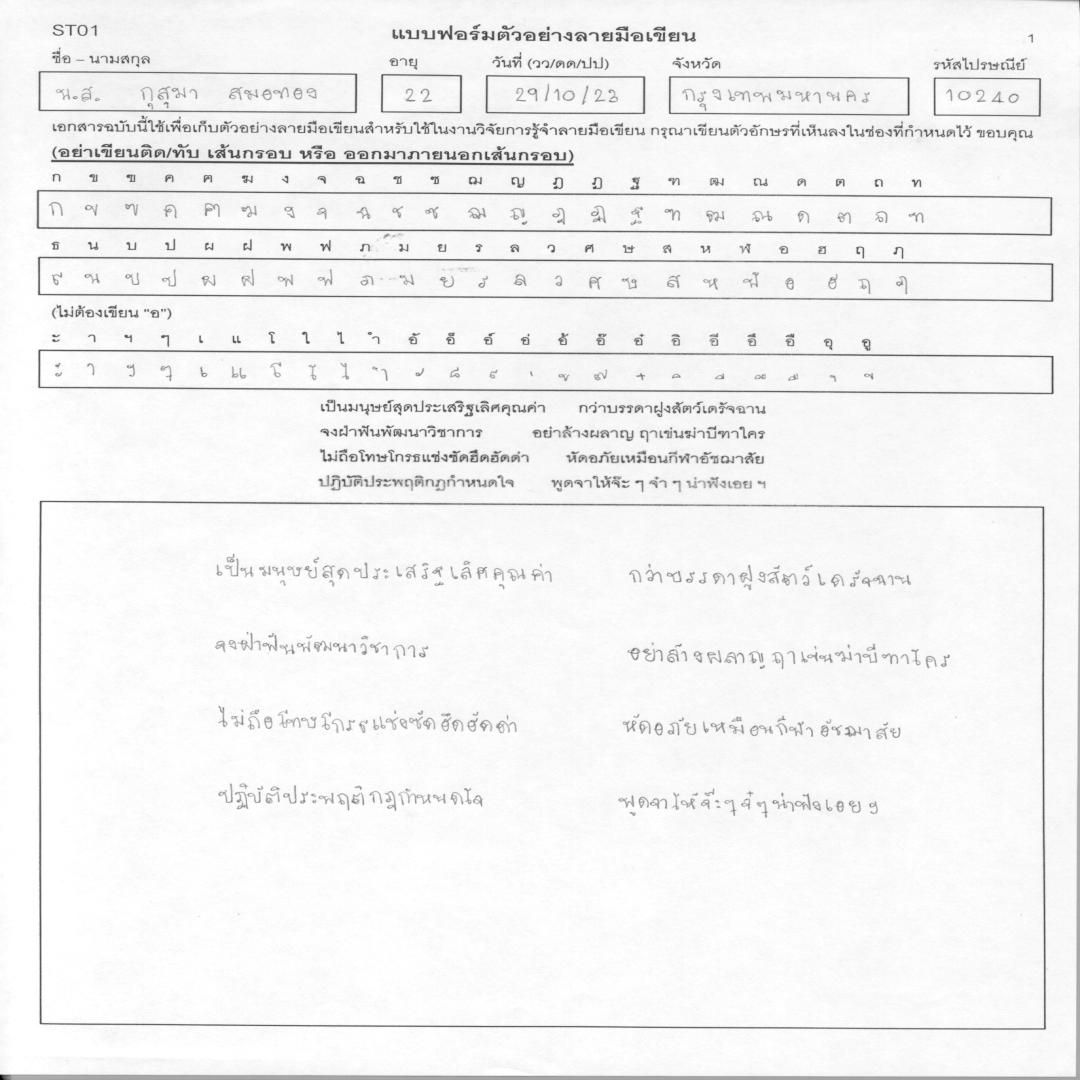 ST01 แบบฟอร์มตัวอย่างลายมือเขียน 1
ชื่อ – นามสกุล อายุ วันที่ (วว/ดด/ปป) จังหวัด รหัสไปรษณีย์
น.ส. กุสุมา สมอทอง 22 29/10/23 กรุงเทพมหานคร 10240
เอกสารฉบับนี้ใช้เพื่อเก็บตัวอย่างลายมือเขียนสำหรับใช้ในงานวิจัยการรู้จำลายมือเขียน กรุณาเขียนตัวอักษรที่เห็นลงในช่องที่กำหนดไว้ ขอบคุณ
(อย่าเขียนติด/ทับ เส้นกรอบ หรือ ออกมาภายนอกเส้นกรอบ)
ก ข ฃ ค ฅ ฆ ง จ ฉ ช ซ ฌ ญ ฎ ฏ ฐ ฑ ฒ ณ ด ต ถ ท
ก ข ฃ ค ฅ ฆ ง จ ฉ ช ซ ฌ ญ ฎ ฏ ฐ ฑ ฒ ณ ด ต ถ ท
ธ น บ ป ผ ฝ พ ฟ ภ ม ย ร ล ว ศ ษ ส ห ฬ อ ฮ ฤ ฦ
ธ น บ ป ผ ฝ พ ฟ ภ ม ย ร ล ว ศ ษ ส ห ฬ อ ฮ ฤ ฦ
(ไม่ต้องเขียน "อ")
ะ า ฯ ๆ เ แ โ ใ ไ ำ อั อ็ อ์ อ่ อ้ อ๊ อ๋ อิ อี อึ อื อุ อู
ะ า ฯ ๆ เ แ โ ใ ไ ำ ั ็ ์ ่ ้ ๊ ๋ ิ ี ึ ื ุ ู
เป็นมนุษย์สุดประเสริฐเลิศคุณค่า กว่าบรรดาฝูงสัตว์เดรัจฉาน
จงฝ่าฟันพัฒนาวิชาการ อย่าล้างผลาญ ฤาเข่นฆ่าบีฑาใคร
ไม่ถือโทษโกรธแช่งซัดฮึดฮัดด่า หัดอภัยเหมือนกีฬาอัชฌาสัย
ปฏิบัติประพฤติกฎกำหนดใจ พูดจาให้จ๊ะ ๆ จ๋า ๆ น่าฟังเอย ฯ
เป็นมนุษย์สุดประเสริฐเลิศคุณค่า กว่าบรรดาฝูงสัตว์เดรัจฉาน
จงฝ่าฟันพัฒนาวิชาการ อย่าล้างผลาญ ฤาเข่นฆ่าบีฑาใคร
ไม่ถือโทษโกรธแช่งซัดฮึดฮัดด่า หัดอภัยเหมือนกีฬาอัชฌาสัย
ปฏิบัติประพฤติกฎกำหนดใจ พูดจาให้จ๊ะๆจ๋ๆน่าฟังเอยฯ